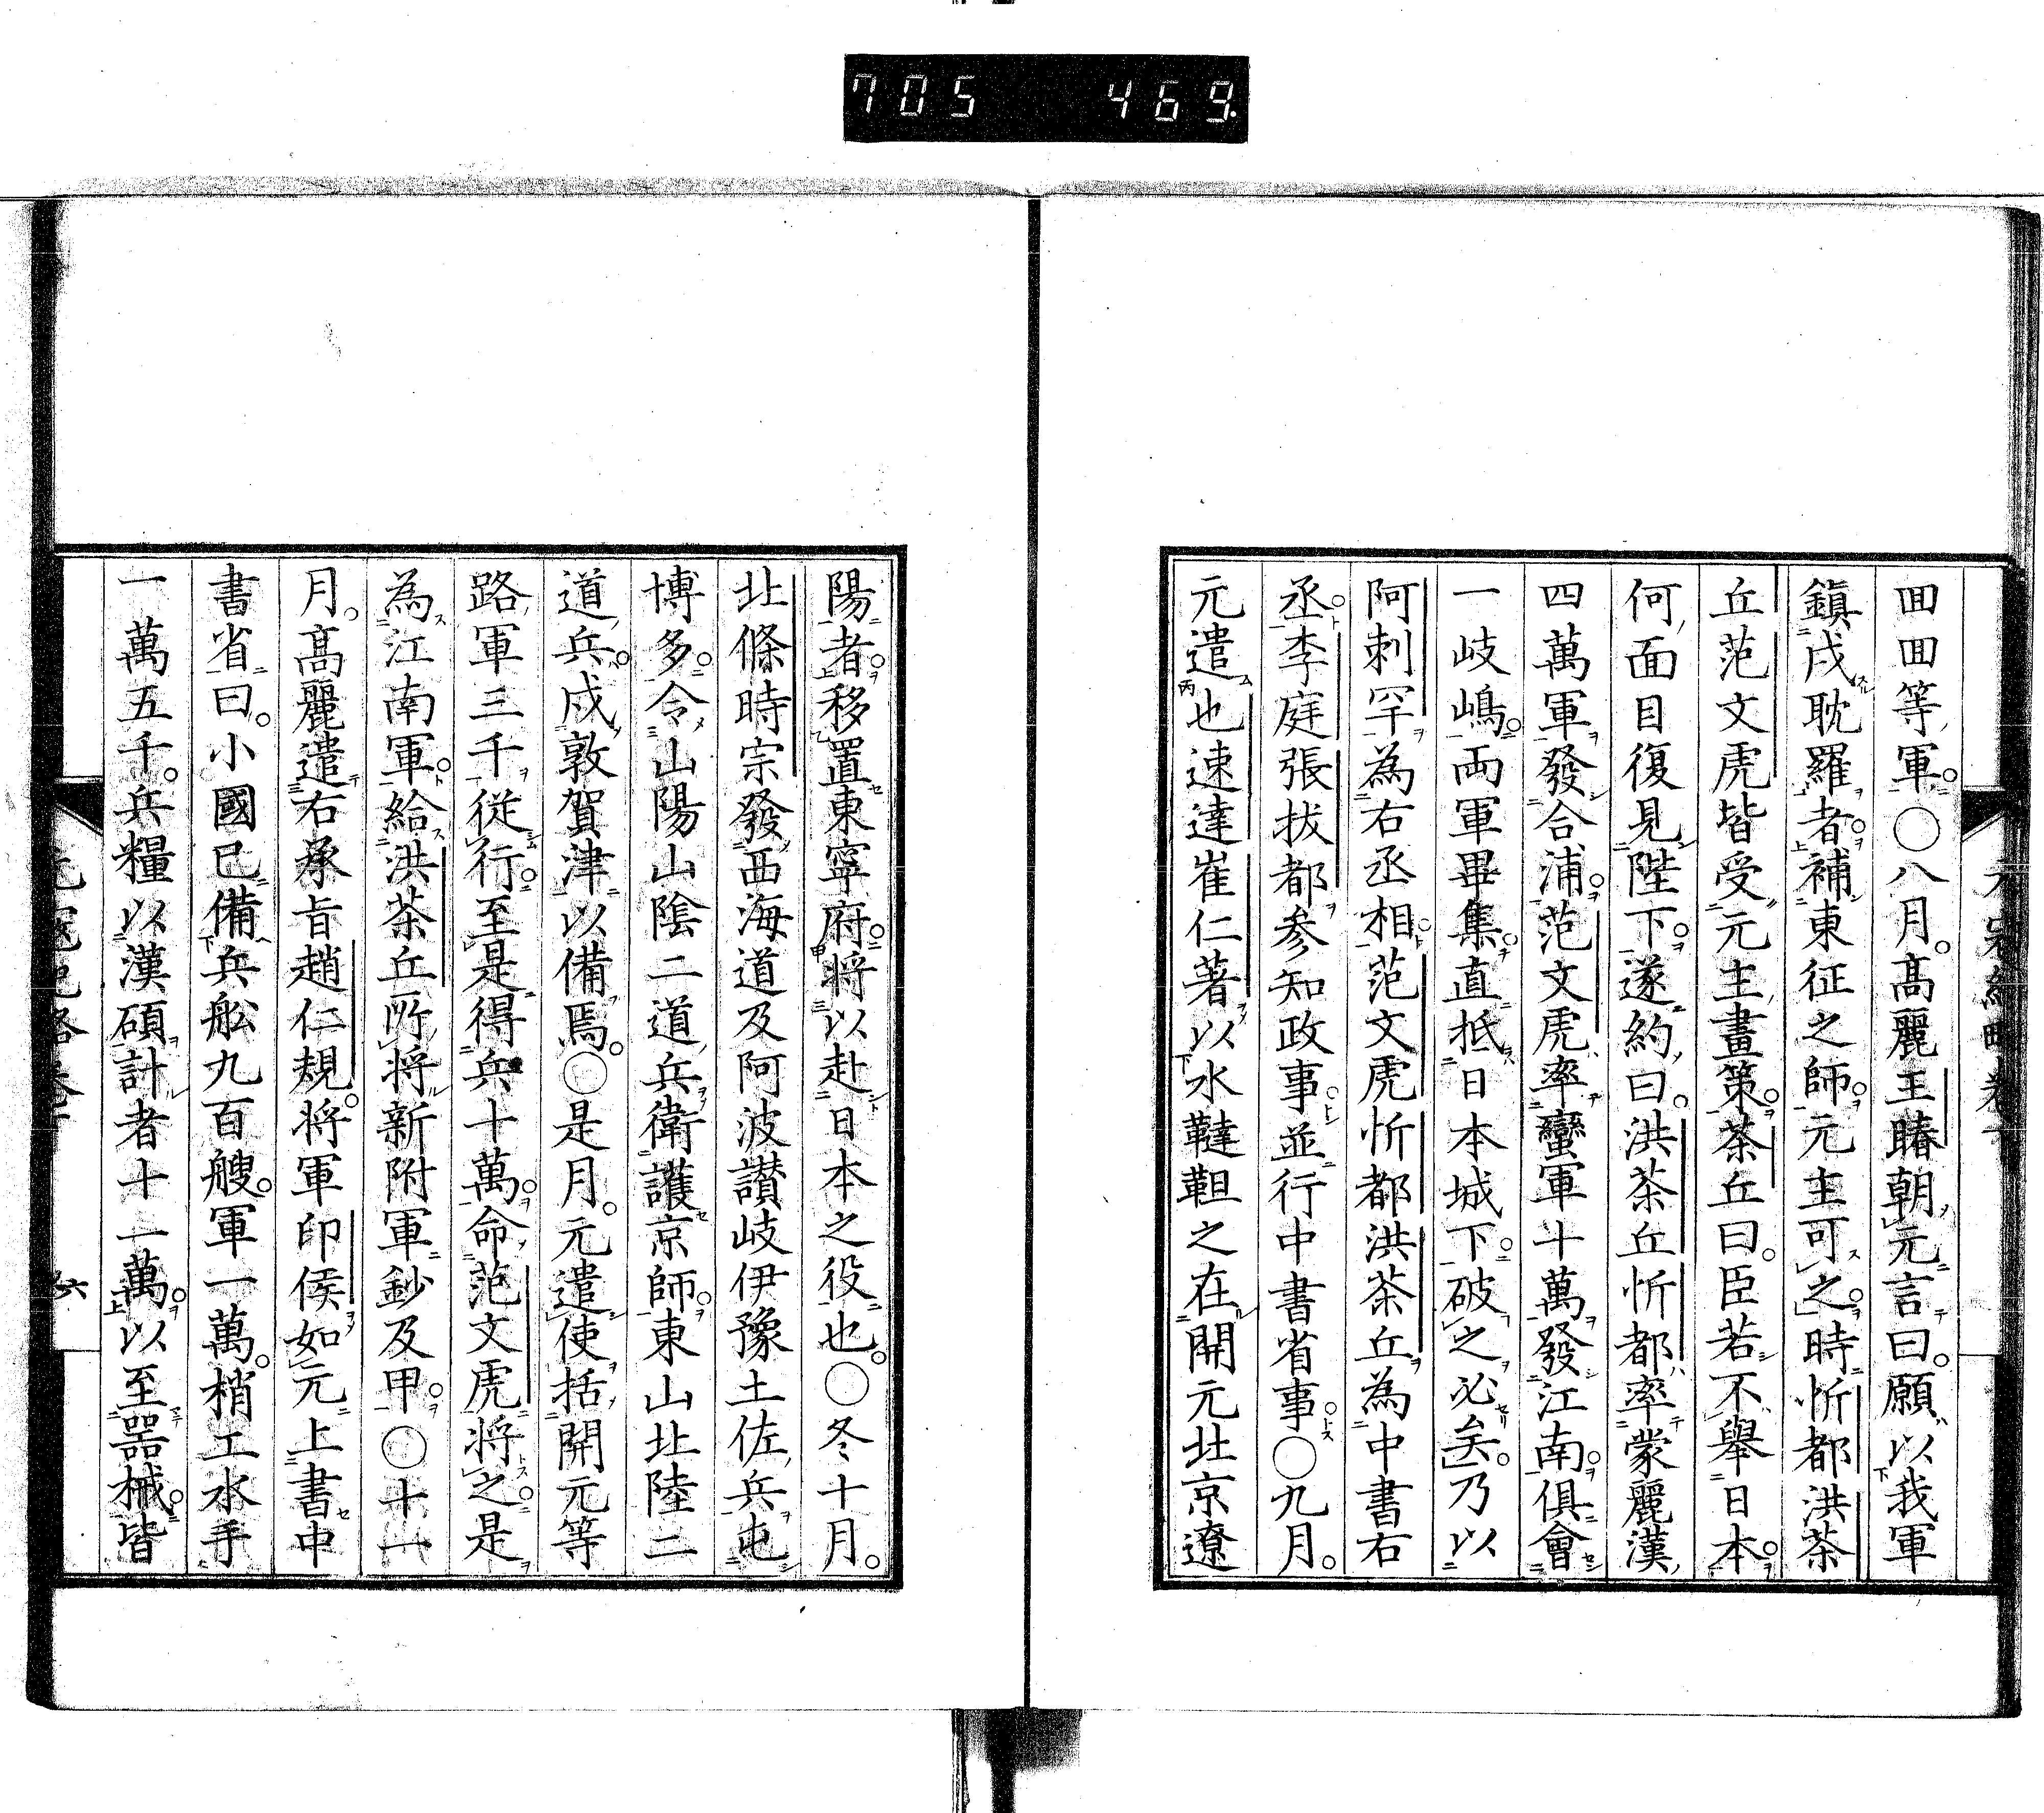 705 469
回回等軍○八月高麗王賰朝元言曰願以我軍
鎮戍耽羅者補東征之師元主可之時忻都洪茶
丘范文虎皆受元主畫策茶丘曰臣若不舉日本
何面目復見陛下遂約曰洪茶丘忻都率蒙麗漢
四萬軍發合浦范文虎率蠻軍十萬發江南俱會
一岐嶋両軍畢集直抵日本城下破之必矣乃以
阿刺罕為右丞相范文虎忻都洪茶丘為中書右
丞李庭張拔都参知政事並行中書省事○九月
元遣也速達崔仁著以水韃靼之在開元北京遼
陽者移置東寧府将以赴日本之役也○冬十月
北條時宗發西海道及阿波讃岐伊豫土佐兵屯
博多令山陽山陰二道兵衛護京師東山北陸二
道兵戍敦賀津以備焉○是月元遣使括開元等
路軍三千従行至是得兵十萬命范文虎将之是
為江南軍給洪茶丘所将新附軍鈔及甲○十一
月高麗遣右承旨趙仁規将軍印侯如元上書中
書省曰小國已備兵船九百艘軍一萬梢工水手
一萬五千兵糧以漢碩計者十一萬以至器械皆
元寇紀略巻下
六